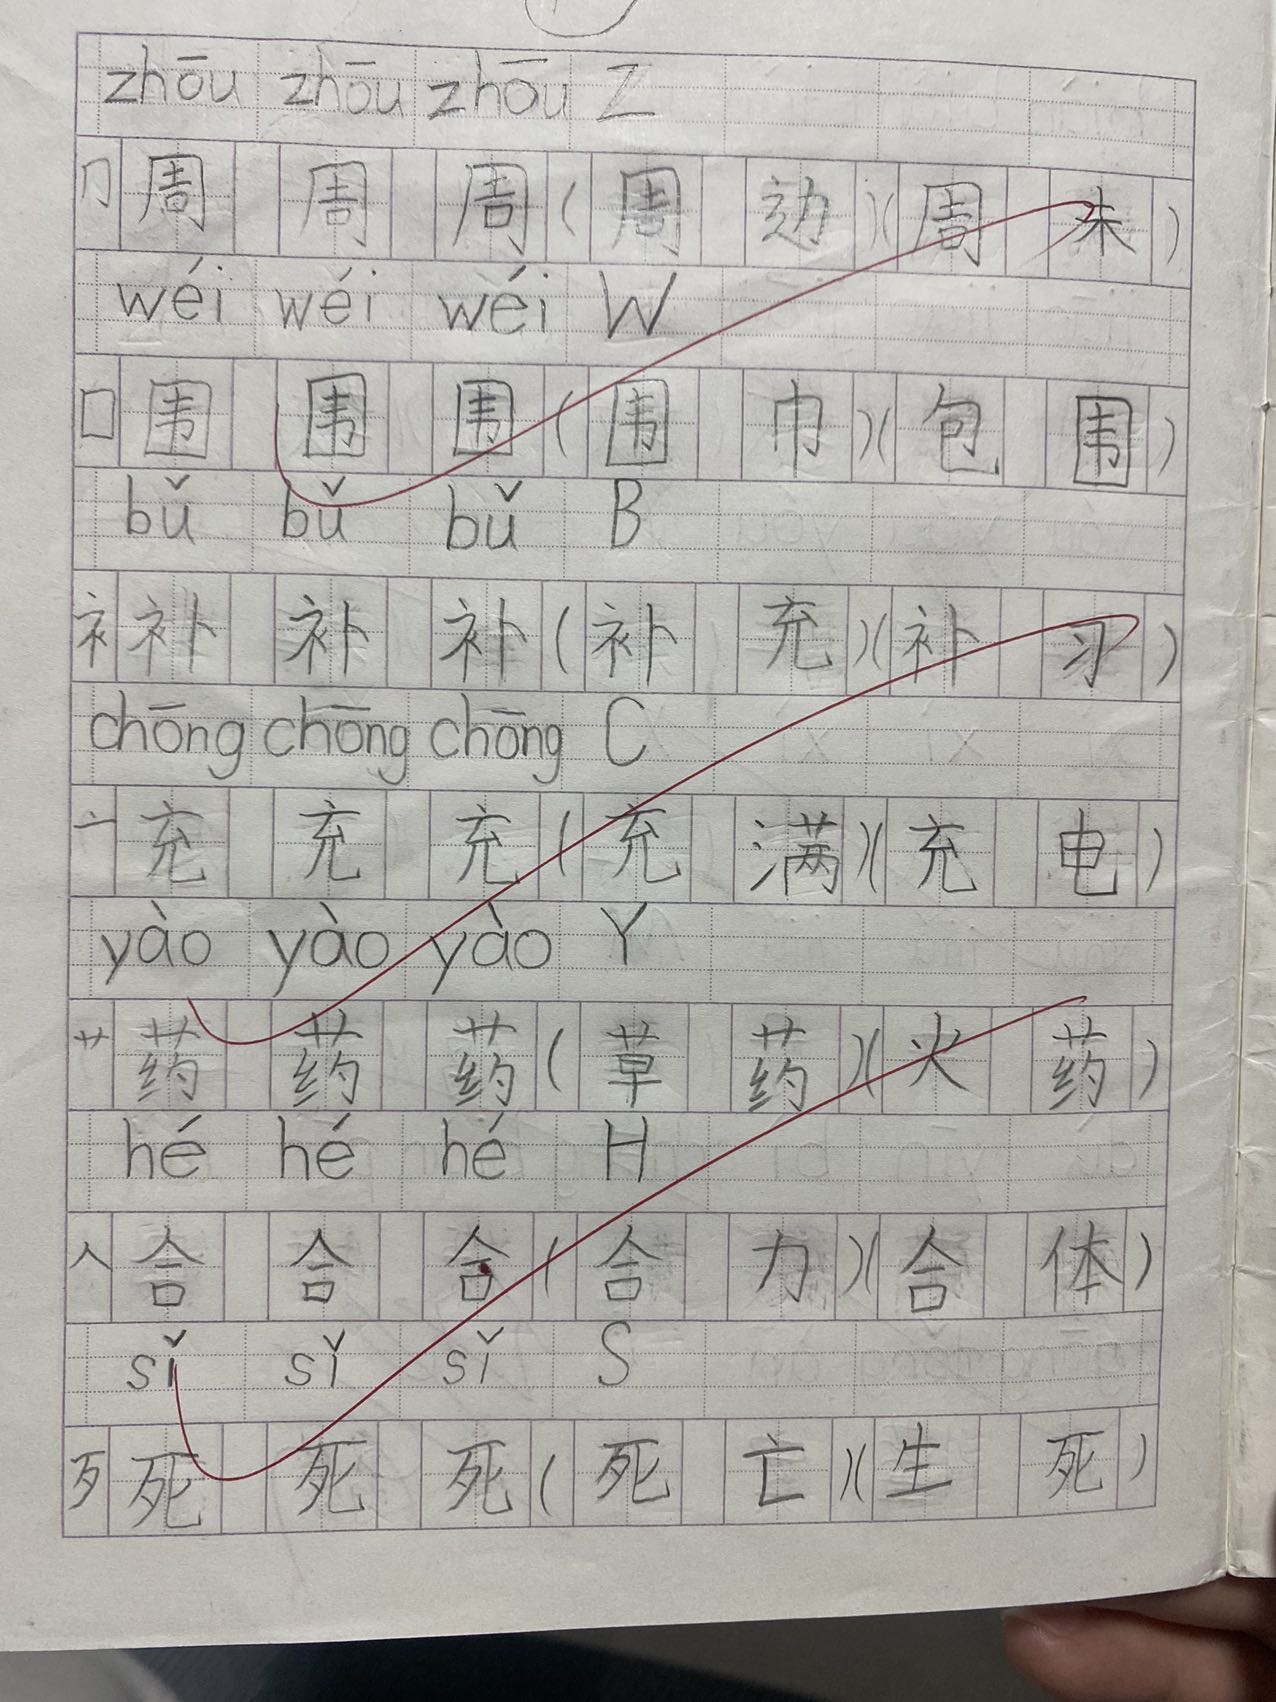 zhōu zhōu zhōu Z
冂 周 周 周 ( 周 边 )( 周 末 )
wéi wéi wéi W
囗 围 围 围 ( 围 巾 )( 包 围 )
bǔ bǔ bǔ B
衤 补 补 补 ( 补 充 )( 补 习 )
chōng chōng chōng C
亠 充 充 充 ( 充 满 )( 充 电 )
yào yào yào Y
艹 药 药 药 ( 草 药 )( 火 药 )
hé hé hé H
人 合 合 合 ( 合 力 )( 合 体 )
sǐ sǐ sǐ S
歹 死 死 死 ( 死 亡 )( 生 死 )